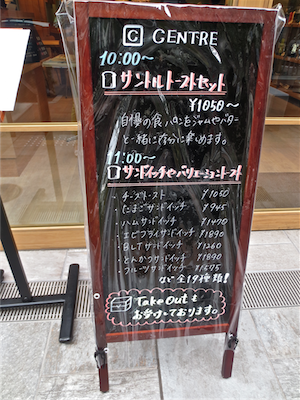 C CENTRE
10:00〜
サントル トーストセット
¥1050〜
自慢の食パンをジャムやバター
と一緒に存分に楽しめます。
11:00〜
サンドイッチやバリエーショントースト
・チーズトースト ¥1050
・たまごサンドイッチ ¥945
・ハムサンドイッチ ¥1470
・エビフライサンドイッチ ¥1890
・BLTサンドイッチ ¥1260
・とんかつサンドイッチ ¥1890
・フルーツサンドイッチ ¥1575
など全19種類!
Take Outも
お受けしております。